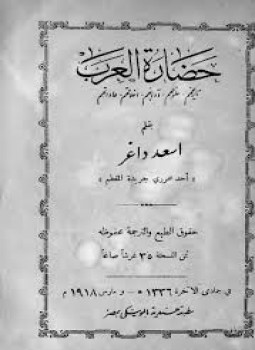 حضارة العرب
تاريخهم ، علومهم ، آدابهم ، اخلاقهم ، عاداتهم
بقلم
اسعد داغر
« احد محرري جريدة المقطم »
حقوق الطبع والترجمة محفوظة
ثمن النسخة ٣٥ غرشاً صاغاً
في جمادى الآخرة ١٣٣٦ ھ - و مارس ١٩١٨ م
مطبعة هندية بالموسكي بمصر